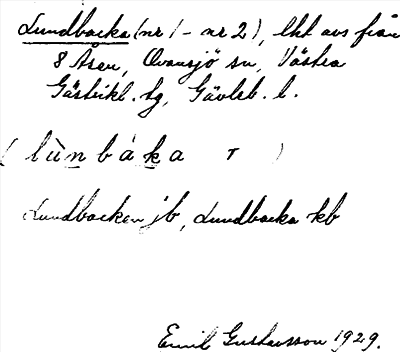 Lundbacka (nr 1 – nr 2), lht avs från
8 Åsen, Ovansjö sn, Västra
Gästrikl. tg, Gävleb. l.
( lùnbàka т )
Lundbacken jb, Lundbacka kb
Emil Gustavsson 1929.